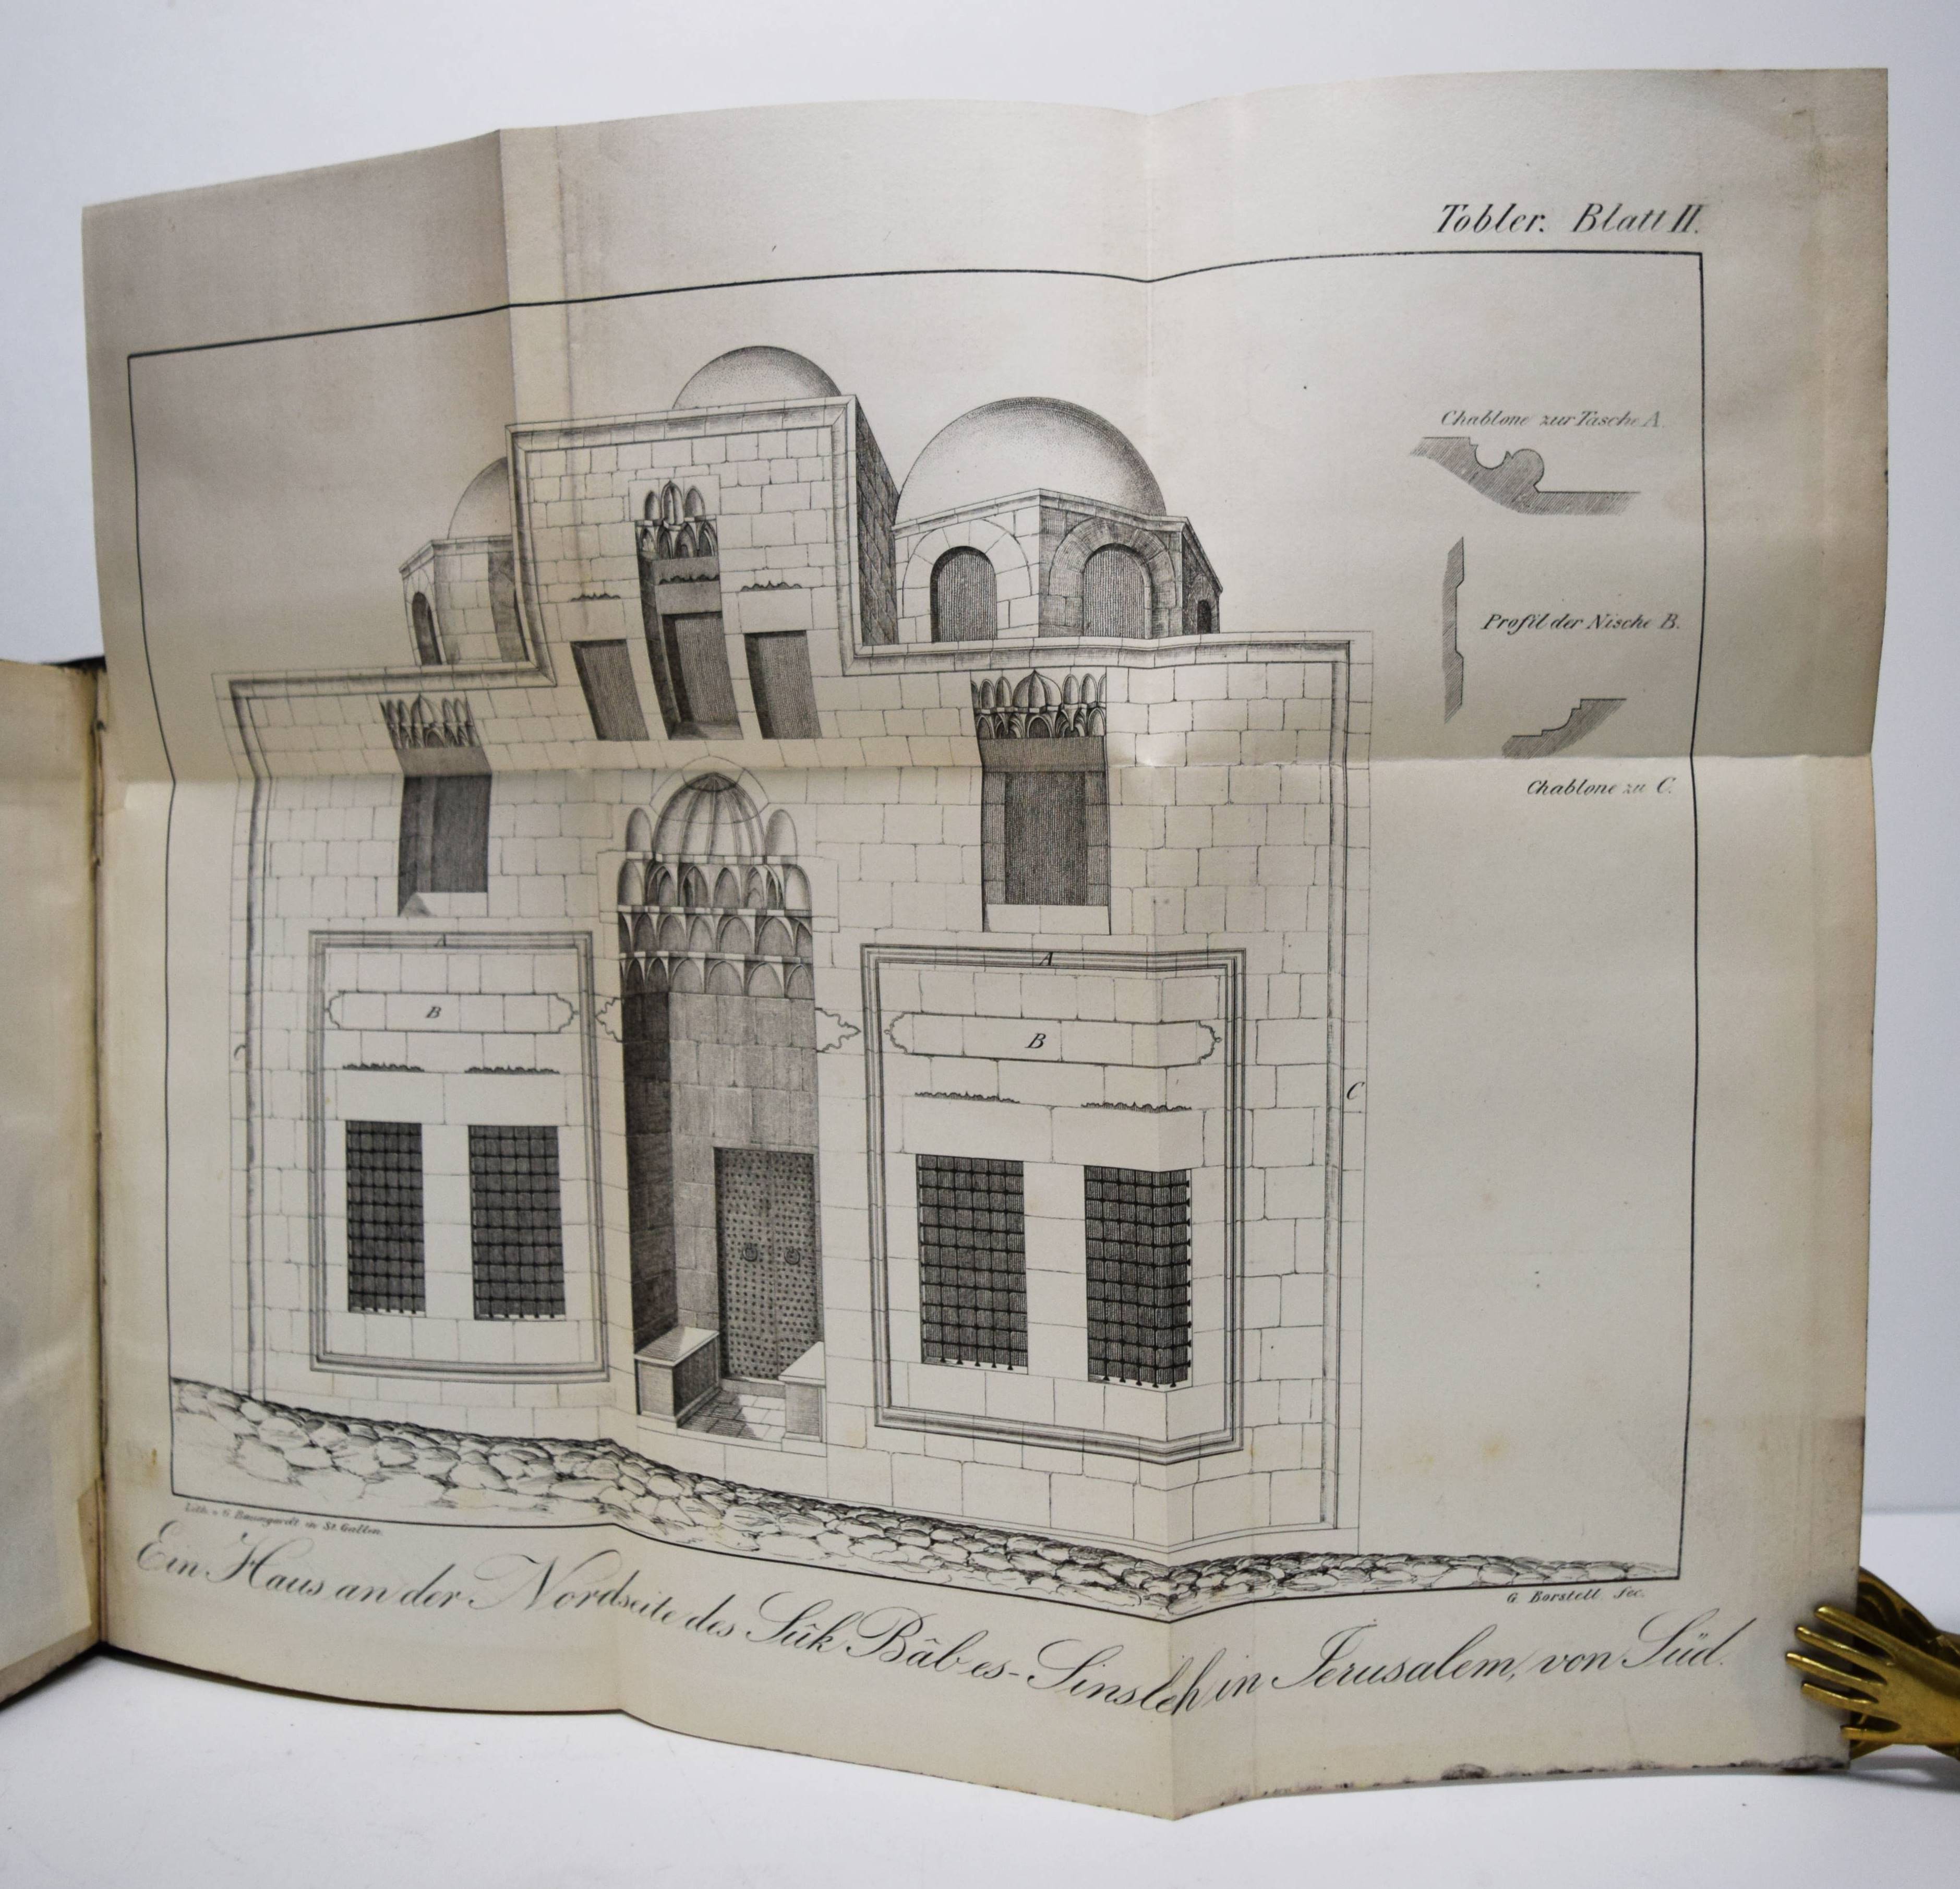 Tobler. Blatt II.
Chablone zur Tasche A.
Profil der Nische B.
Chablone zu C.
A
B
A
B
C
Lith. v. G. Baumgardt in St. Gallen.
G. Borstell fec.
Ein Haus an der Nordseite des Sûk Bâb es-Sinsleh in Jerusalem, von Süd.